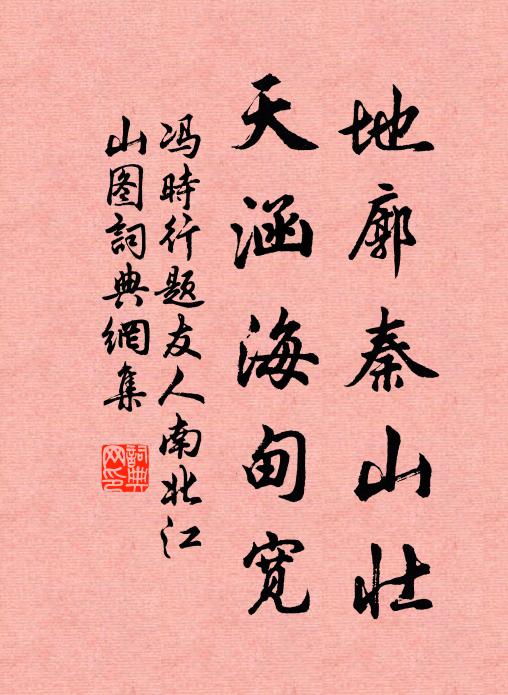 地廓秦山壮
天涵海甸宽
冯時行题友人南北江
山图詞典網集
詞典
网印